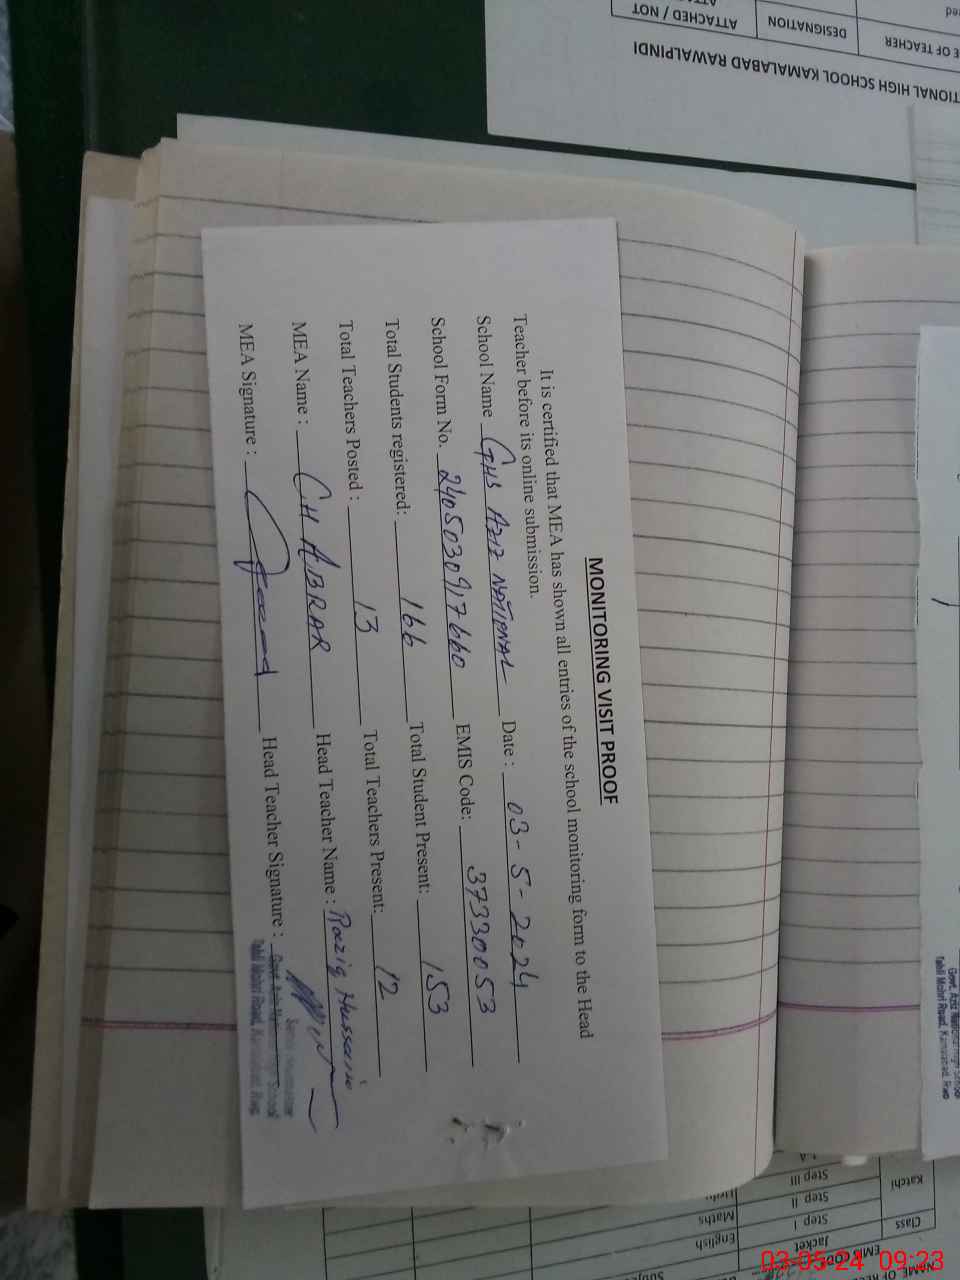 MONITORING VISIT PROOF
It is certified that MEA has shown all entries of the school monitoring form to the Head
Teacher before its online submission.
School Name GHS AZIZ NATIONAL Date : 03-5-2024
School Form No. 2405030917660 EMIS Code: 37330053
Total Students registered: 166 Total Student Present: 153
Total Teachers Posted : 13 Total Teachers Present: 12
MEA Name : CH ABRAR Head Teacher Name : Raziq Hussain
MEA Signature : Head Teacher Signature :
Tahli Mohri Road, Kamalabad, Rwp
Govt. Aziz National High School
Tahli Mohri Road, Kamalabad, Rwp
TIONAL HIGH SCHOOL KAMALABAD RAWALPINDI
E OF TEACHER DESIGNATION ATTACHED / NOT
EMIS COD
Class Jacket English
Step I Maths
Katchi Step II
Step III
03-05-24 09:23